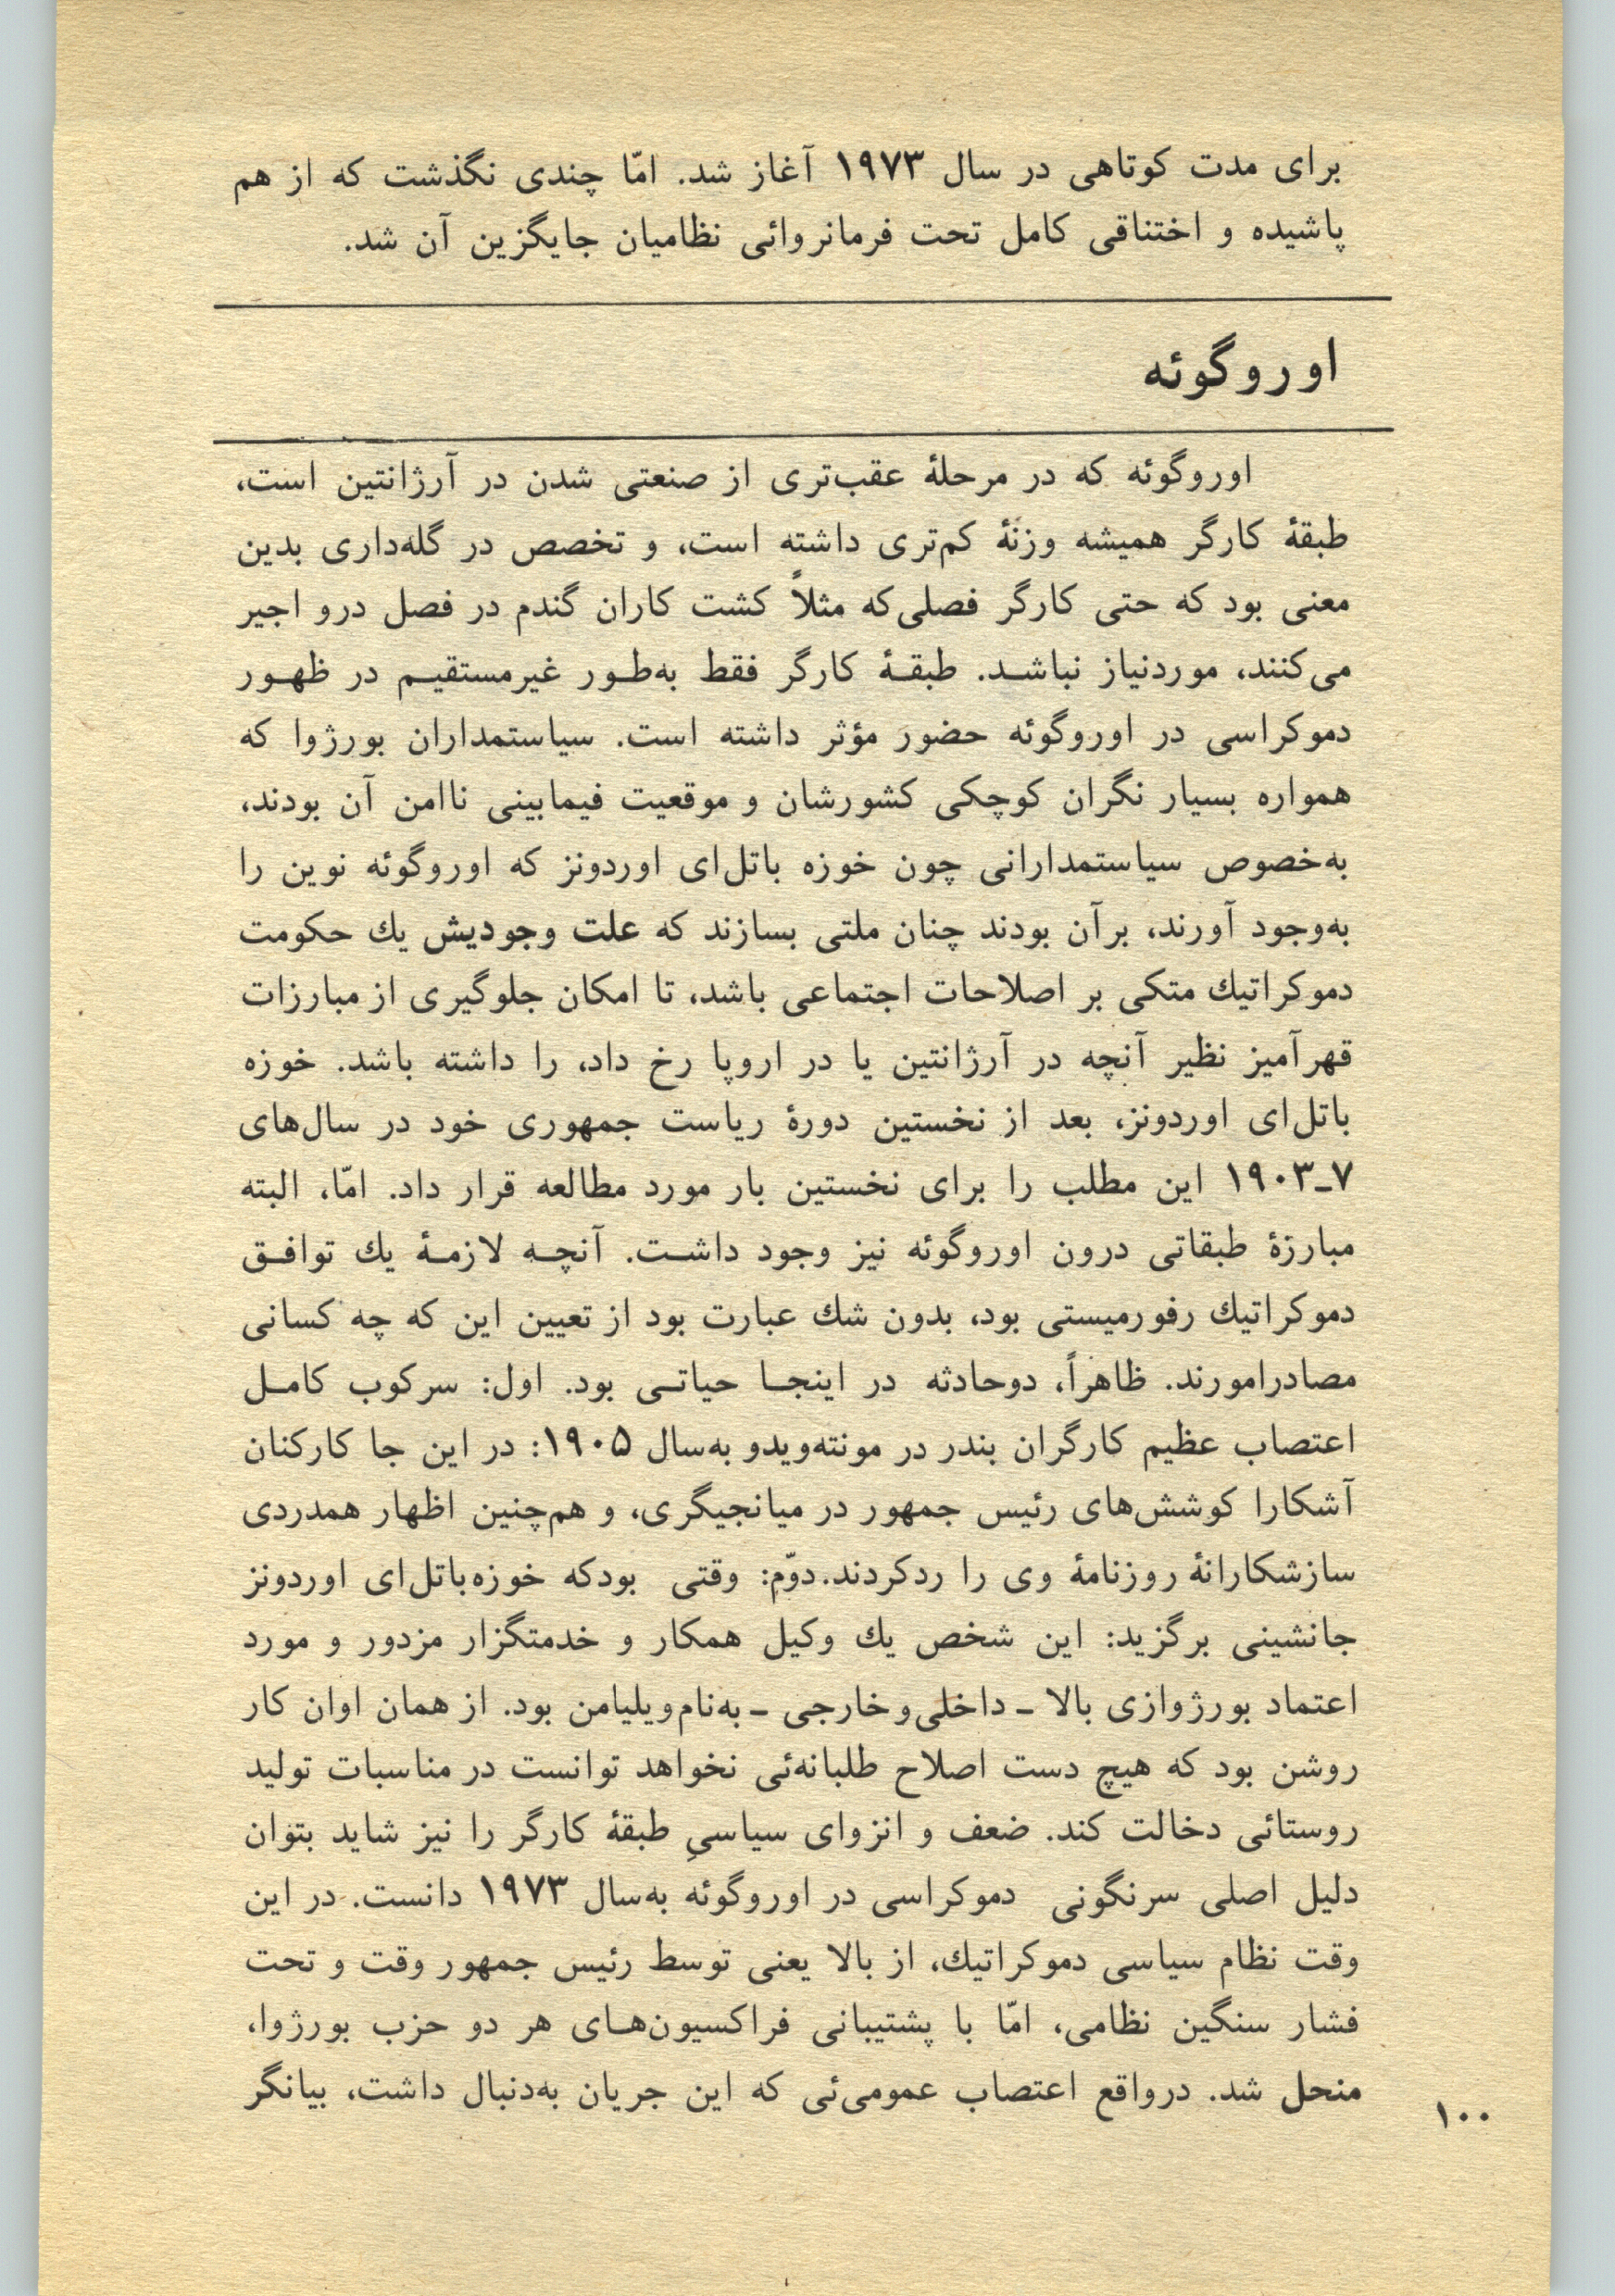 برای مدت کوتاهی در سال ۱۹۷۳ آغاز شد. امّا چندی نگذشت که از هم
پاشیده و اختناقی کامل تحت فرمانروائی نظامیان جایگزین آن شد.
اوروگوئه
اوروگوئه که در مرحلهٔ عقب‌تری از صنعتی شدن در آرژانتین است،
طبقهٔ کارگر همیشه وزنهٔ کم‌تری داشته است، و تخصص در گله‌داری بدین
معنی بود که حتی کارگر فصلی‌که مثلاً کشت کاران گندم در فصل درو اجیر
می‌کنند، موردنیاز نباشـد. طبقـهٔ کارگر فقط به‌طـور غیرمستقیـم در ظهـور
دموکراسی در اوروگوئه حضور مؤثر داشته است. سیاستمداران بورژوا که
همواره بسیار نگران کوچکی کشورشان و موقعیت فیمابینی ناامن آن بودند،
به‌خصوص سیاستمدارانی چون خوزه باتل‌ای اوردونز که اوروگوئه نوین را
به‌وجود آورند، برآن بودند چنان ملتی بسازند که علت وجودیش یك حکومت
دموکراتیك متکی بر اصلاحات اجتماعی باشد، تا امکان جلوگیری از مبارزات
قهرآمیز نظیر آنچه در آرژانتین یا در اروپا رخ داد، را داشته باشد. خوزه
باتل‌ای اوردونز، بعد از نخستین دورهٔ ریاست جمهوری خود در سال‌های
۷ـ۱۹۰۳ این مطلب را برای نخستین بار مورد مطالعه قرار داد. امّا، البته
مبارزهٔ طبقاتی درون اوروگوئه نیز وجود داشـت. آنچـه لازمـهٔ یك توافـق
دموکراتیك رفورمیستی بود، بدون شك عبارت بود از تعیین این که چه کسانی
مصادرامورند. ظاهراً، دوحادثه در اینجـا حیاتـی بود. اول: سرکوب کامـل
اعتصاب عظیم کارگران بندر در مونته‌ویدو به‌سال ۱۹۰۵: در این جا کارکنان
آشکارا کوشش‌های رئیس جمهور در میانجیگری، و هم‌چنین اظهار همدردی
سازشکارانهٔ روزنامهٔ وی را ردکردند.دوّم: وقتی بودکه خوزه‌باتل‌ای اوردونز
جانشینی برگزید: این شخص یك وکیل همکار و خدمتگزار مزدور و مورد
اعتماد بورژوازی بالا ـ داخلی‌وخارجی ـ به‌نام‌ویلیامن بود. از همان اوان کار
روشن بود که هیچ دست اصلاح طلبانه‌ئی نخواهد توانست در مناسبات تولید
روستائی دخالت کند. ضعف و انزوای سیاسیِ طبقهٔ کارگر را نیز شاید بتوان
دلیل اصلی سرنگونی دموکراسی در اوروگوئه به‌سال ۱۹۷۳ دانست. در این
وقت نظام سیاسی دموکراتیك، از بالا یعنی توسط رئیس جمهور وقت و تحت
فشار سنگین نظامی، امّا با پشتیبانی فراکسیون‌هـای هر دو حزب بورژوا،
منحل شد. درواقع اعتصاب عمومی‌ئی که این جریان به‌دنبال داشت، بیانگر
۱۰۰